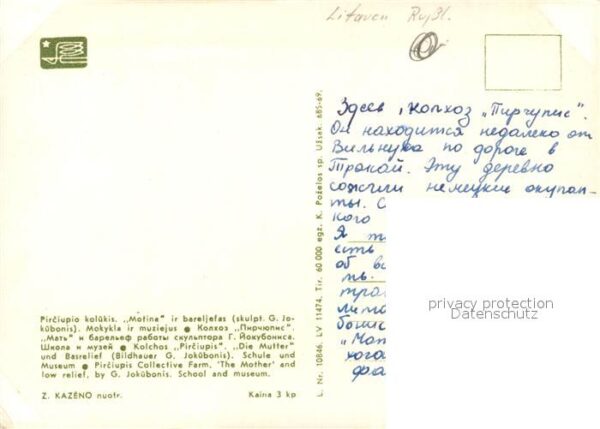 Litauen Rußl.
Здесь, колхоз „Пирчупис".
Он находится недалеко от
Вильнуса по дороге в
Тракай. Эту деревню
сожгли немецкие оккупан-
ты. С
кого
Я
есть
об
ть.
трак
лито
бонис
"Мат
хога
фа
privacy protection
Datenschutz
Pirčiupio kolūkis. „Motina" ir bareljefas (skulpt. G. Jo-
kūbonis). Mokykla ir muziejus ● Колхоз „Пирчюпис".
„Мать" и барельеф работы скульптора Г. Йокубониса.
Школа и музей ● Kolchos „Pirčiupis". „Die Mutter"
und Basrelief (Bildhauer G. Jokūbonis). Schule und
Museum ● Pirčiupis Collective Farm, 'The Mother' and
low relief, by G. Jokūbonis. School and museum.
Z. KAZĖNO nuotr. Kaina 3 kp
L. Nr. 10846. LV 11474. Tir. 60 000 egz. K. Poželos sp. Užsak. 685-69.